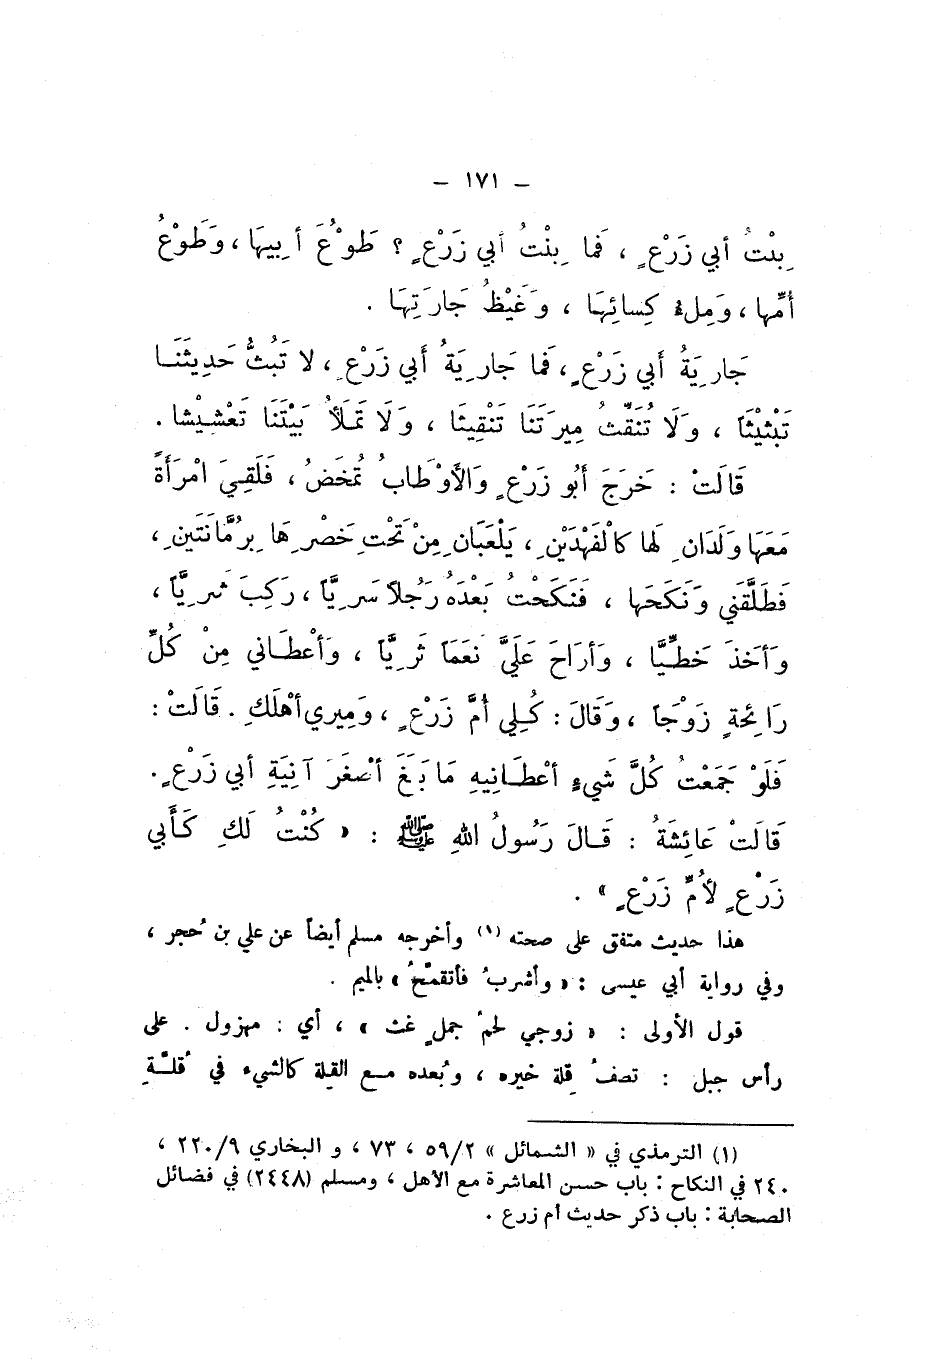 – ١٧١ –
بِنْتُ أَبي زَرْعٍ ، فَما بِنْتُ أَبي زَرْعٍ ؟ طَوْعَ أَبِيهَا ، وَطَوْعُ
أُمِّها ، وَمِلْءُ كِسائِهَا ، وَغَيْظُ جَارَتِهَا .
جَارِيَةُ أَبي زَرْعٍ ، فَما جَارِيَةُ أَبي زَرْعٍ ، لا تَبُثُّ حَدِيثَنَا
تَبْثِيْثَاً ، وَلَا تُنَقِّثُ مِيرَتَنَا تَنْقِيثَا ، وَلَا تَمْلَأُ بَيْتَنَا تَعْشِيْشا .
قَالَتْ : خَرَجَ أَبُو زَرْعٍ وَالأَوْطَابُ تُمْخَضُ ، فَلَقِيَ امْرَأَةً
مَعَهَا وَلَدَانِ لَها كالْفَهْدَيْنِ ، يَلْعَبَانِ مِنْ تَحْتِ خَصْرِهَا بِرُمَّانَتَينِ ،
فَطَلَّقَني وَنَكَحَها ، فَنَكَحْتُ بَعْدَهُ رَجُلاً سَرِيَّاً ، رَكِبَ شَرِيَّاً ،
وَأَخَذَ خَطِّيَّا ، وَأرَاحَ عَلَيَّ نَعَمَاً ثَرِيَّاً ، وَأَعْطَاني مِنْ كُلِّ
رَائِحةٍ زَوْجَاً ، وَقَالَ : كُلِي أُمَّ زَرْعٍ ، وَمِيري أَهْلَكِ . قَالَتْ :
فَلَوْ جَمَعْتُ كُلَّ شَيءٍ أَعْطَانِيهِ مَا بَلَغَ أَصْغَرَ آنِيَةِ أَبي زَرْعٍ .
قَالَتْ عَائِشَةُ : قَالَ رَسُولُ اللهِ ﷺ : « كُنْتُ لَكِ كَأَبي
زَرْعٍ لأُمِّ زَرْعٍ » .
هذا حديث متفق على صحته (١) وأخرجه مسلم أيضاً عن علي بن حُجر ،
وفي رواية أبي عيسى : « وأشربُ فأتقمَّحُ » بالميم .
قول الأولى : « زوجي لحمُ جملٍ غث » ، أي : مهزول . على
رأس جبل : تصفُ قِلة خيره ، وبُعده مع القِلة كالشيء في قُلَّةِ
(١) الترمذي في « الشمائل » ٥٩/٢ ، ٧٣ ، و البخاري ٢٢٠/٩ ،
٢٤٠ في النكاح : باب حسن المعاشرة مع الأهل ، ومسلم (٢٤٤٨) في فضائل
الصحابة : باب ذكر حديث أم زرع .